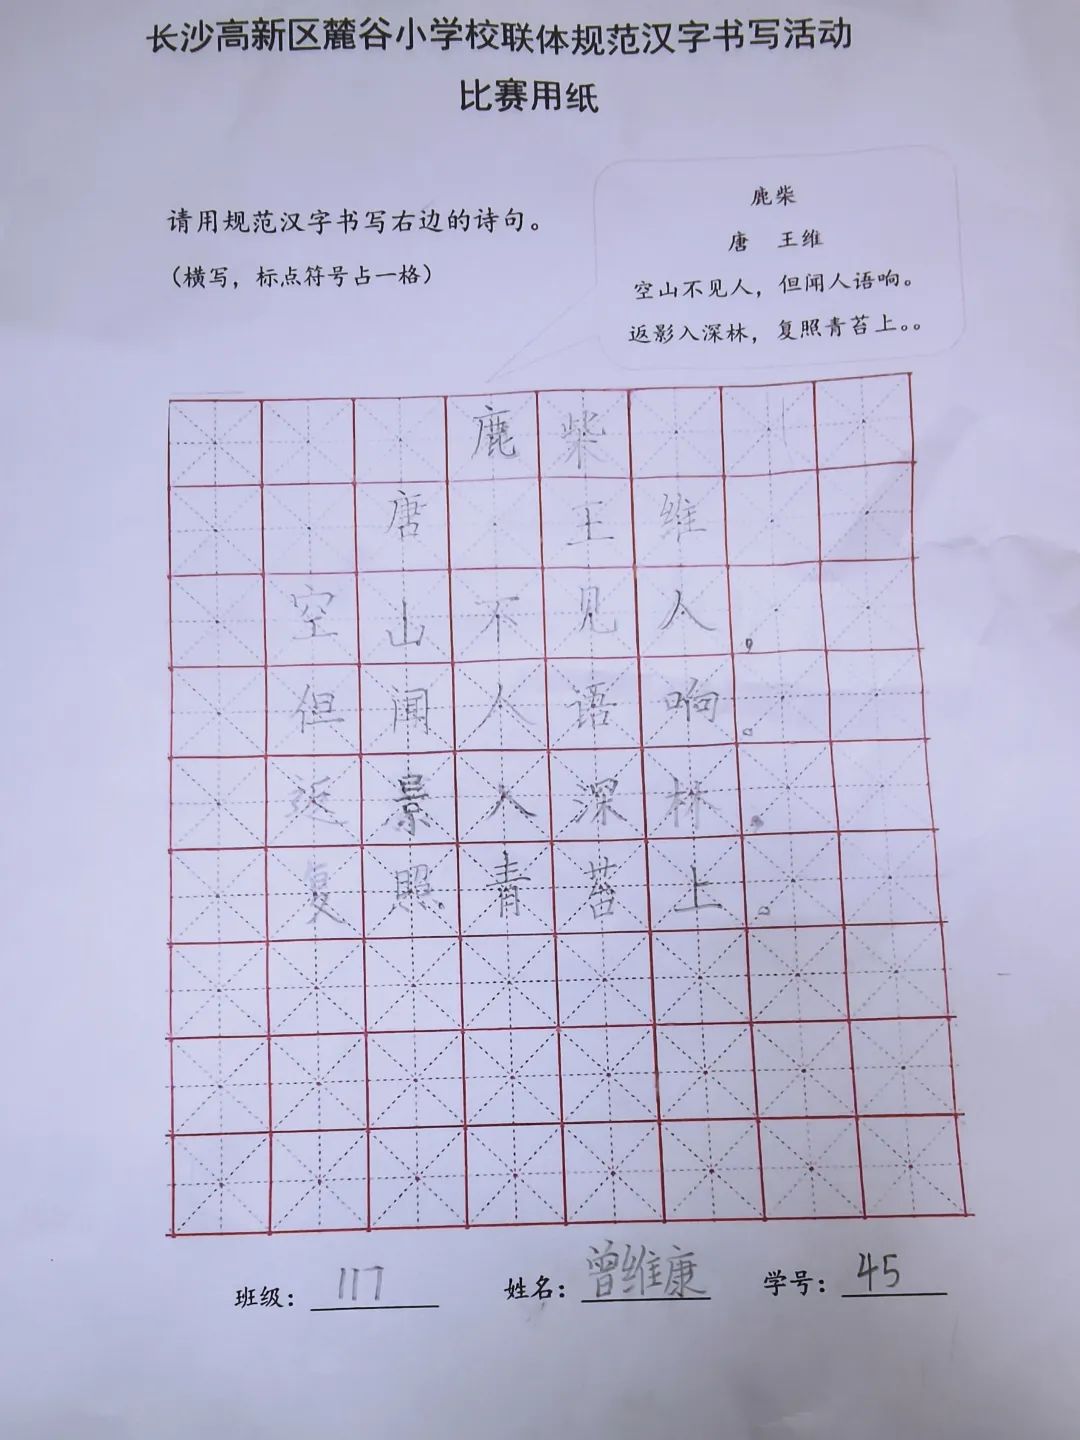 长沙高新区麓谷小学校联体规范汉字书写活动
比赛用纸
请用规范汉字书写右边的诗句。
（横写，标点符号占一格）
鹿柴
唐 王维
空山不见人，但闻人语响。
返影入深林，复照青苔上。。
鹿柴
唐 王维
空山不见人，
但闻人语响。
返景入深林，
复照青苔上。
班级：117 姓名：曾维康 学号：45